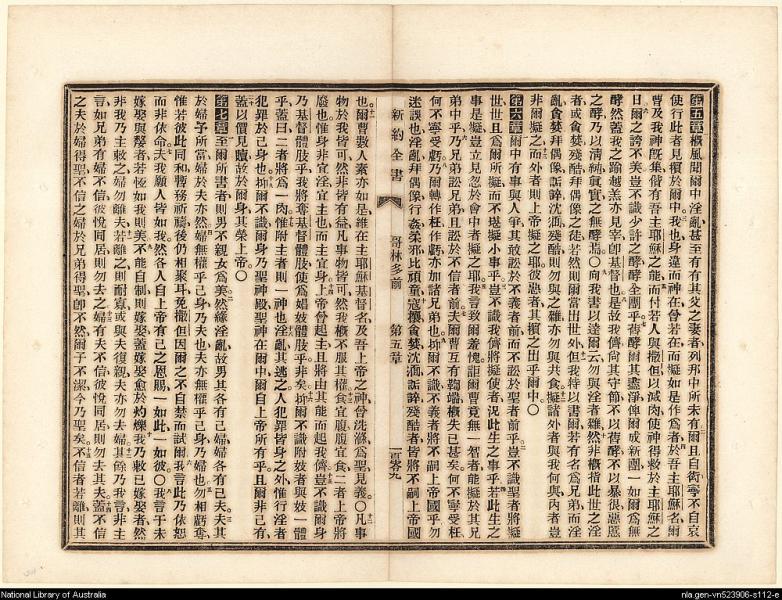 第五章概風聞爾中淫亂甚至有有其父之妻者列邦中所未有爾且自衒寧不自哀
使行此者見擯於爾中我也身違而神在曾若在而擬如是作爲者於吾主耶穌名爾
曹及我神旣集偕有吾主耶穌之能而付若人與撒但以滅肉使神得救於主耶穌之
日爾之誇不美豈不識少許之酵酵全團乎舊酵爾其盡淨俾爾成新團一如爾爲無
酵然蓋我之踰越羔亦見宰卽基督也是故我儕尙其守節不以舊酵不以暴很惡慝
之酵乃以清純眞實之無酵焉○向我書以達爾云勿與淫者雜然非概指此世之淫
者或貪婪殘酷拜偶像之徒若然則爾當出世外但我特以書爾若有名爲兄弟而淫
亂貪婪拜偶像詬誶沈湎殘酷則勿與之雜亦勿與共食擬諸外者與我何與內者豈
非爾擬之而外者則上帝擬之耶彼惡者其擯之出乎爾中○
第六章爾中有事與人爭其敢訟於不義者前而不訟於聖者前乎豈不識聖者將擬
世世且爲爾所擬而不堪擬小事乎豈不識我儕將擬使者况此生之事乎若此生之
事是擬豈立見忽於會中者擬之耶我言致爾羞愧詎爾曹竟無一智者能擬於其兄
弟中乎乃兄弟訟兄弟且訟於不信者前夫爾曹互有鞫端概失已甚矣何不寧受枉
何不寧受虧乃爾轉作枉作虧亦加諸兄弟也抑爾不識不義者將不嗣上帝國乎勿
迷誤也淫亂拜偶像行姦柔邪比頑童寇攘貪婪沈湎詬誶殘酷者皆將不嗣上帝國
新約全書 哥林多前 第五章 一百零九
也爾曹數人素亦如是維在主耶穌基督名及吾上帝之神曾洗滌爲聖見義○凡事
物於我皆可然非皆有益凡事物皆可然我概不服其權食宜腹腹宜食二者上帝將
廢也惟身非宜淫宜主也而主宜身上帝曾起主且將由其能而起我儕豈不識爾身
乃基督體肢乎我將奪基督體肢使爲娼妓體肢乎非矣抑爾不識附妓者與妓一體
乎蓋曰二者將爲一肉惟附主者則一神也淫亂其逃之人犯罪皆身之外惟行淫者
犯罪於己身也抑爾不識爾身乃聖神殿聖神在爾中爾自上帝所有乎且爾非己有
蓋以價見贖故於爾身其榮上帝○
第七章至爾所書者則男不親女爲美然緣淫亂故男其各有己婦婦各有己夫夫其
於婦予所當婦於夫亦然婦無權乎己身乃夫也夫亦無權乎己身乃婦也勿相虧奪
惟若彼此同和暫務祈禱後仍相聚耳免撒但因爾之不自禁而試爾我言此乃依恕
而非依命夫我願人皆如我然各人自上帝有己之恩賜一如此一如彼○我言于未
嫁娶與嫠者若恆如我則美不能自制則嫁娶蓋嫁娶愈於灼爍我乃敕已嫁娶者然
非我乃主敕之婦勿離夫若離之則耐寡或與夫復親夫亦勿去婦其餘乃我言非主
言如兄弟有婦不信彼悅同居則勿去之婦有夫不信彼悅同居則勿去其夫蓋不信
之夫於婦得聖不信之婦於兄弟得聖卽不然爾子不潔今乃聖矣不信者若離則其
National Library of Australia
nla.gen-vn523906-s112-e